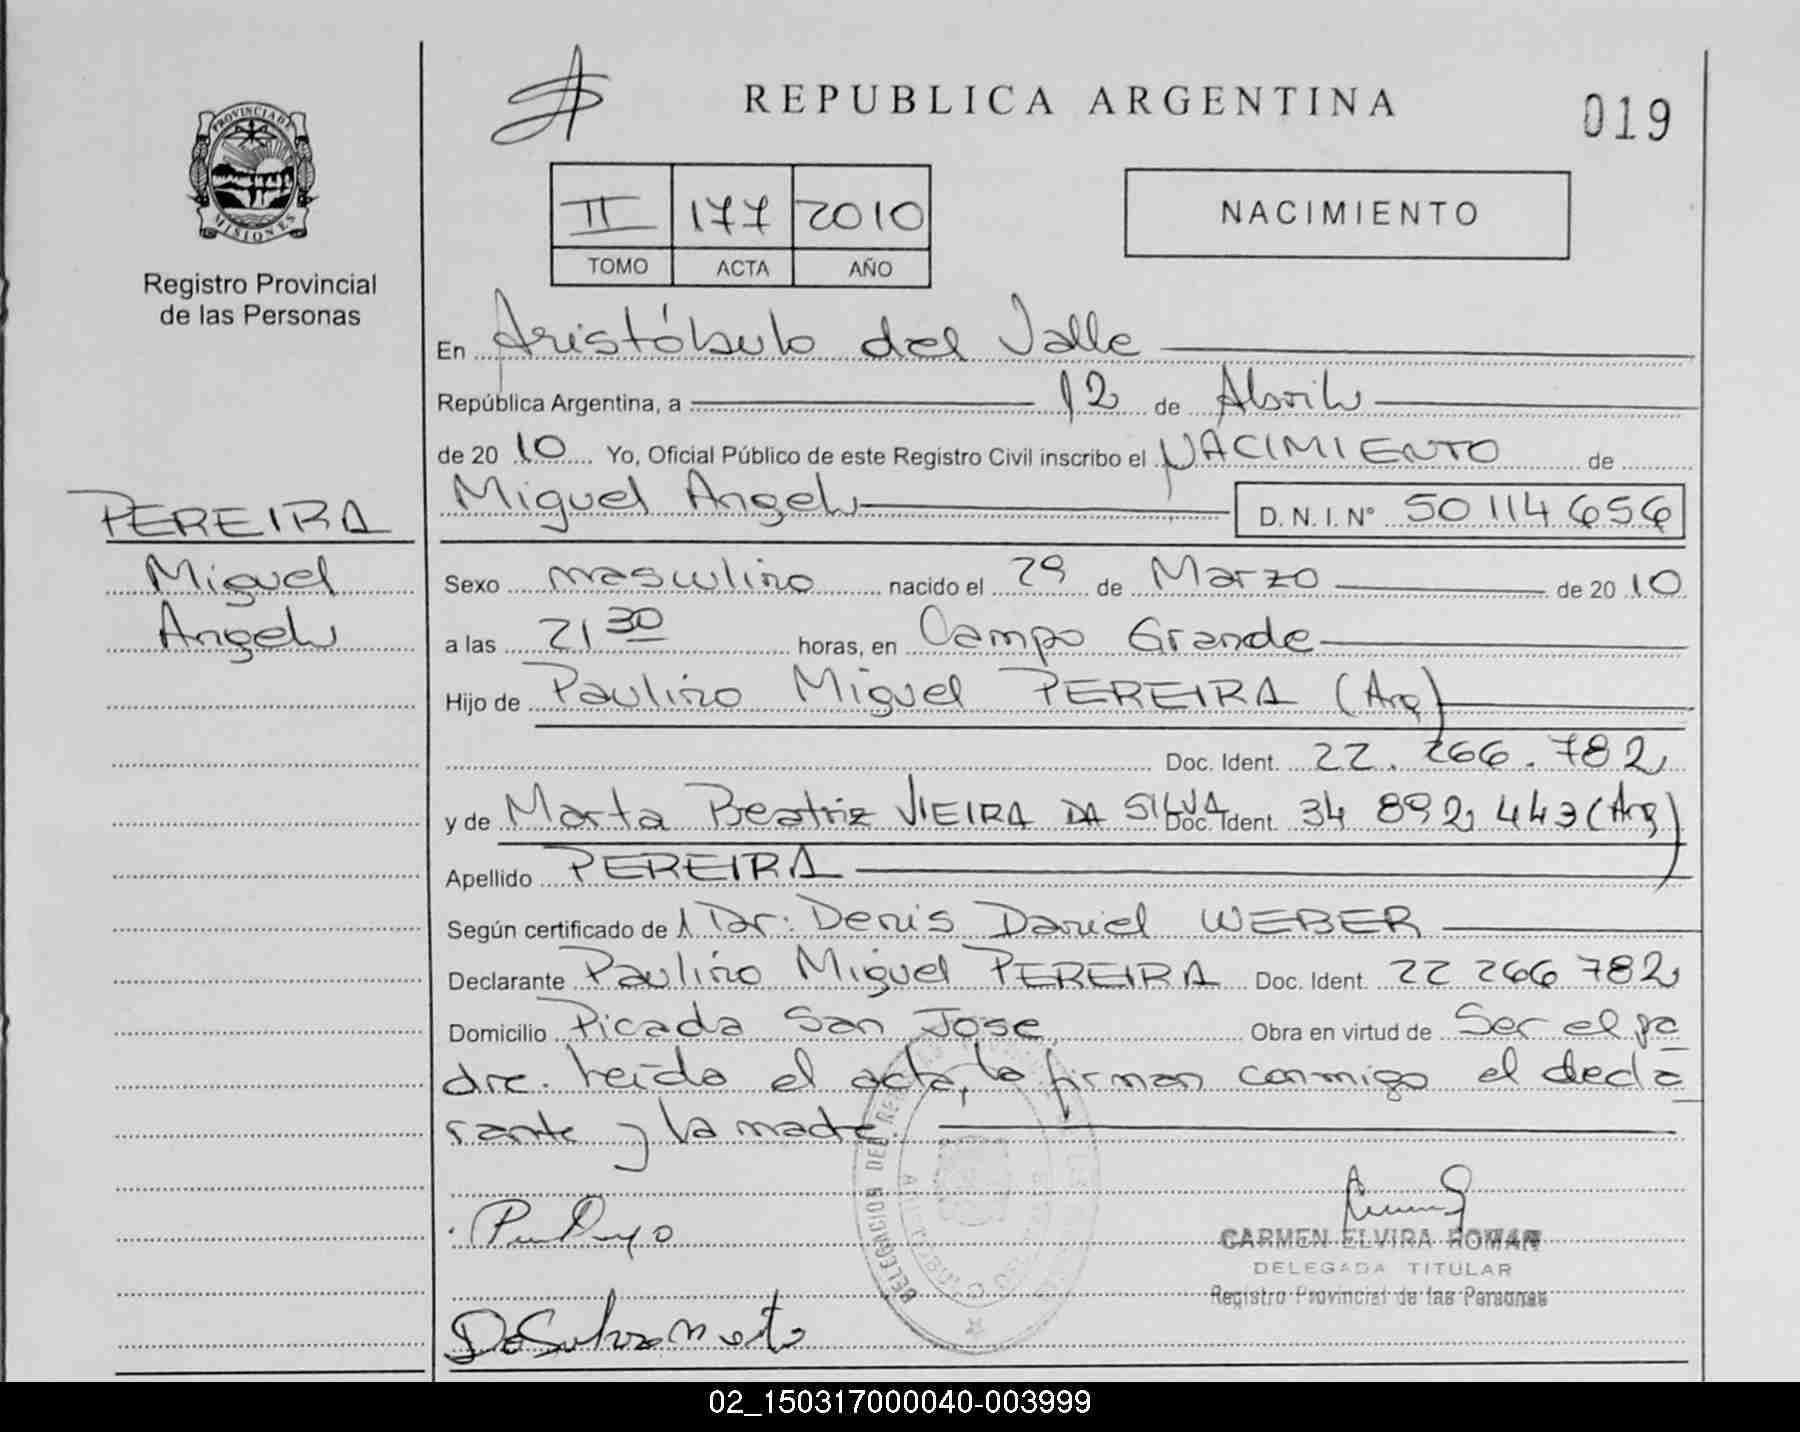 REPUBLICA ARGENTINA
019
PROVINCIA DE
MISIONES
Registro Provincial
de las Personas
II 177 2010
TOMO ACTA AÑO
NACIMIENTO
En Aristóbulo del Valle
República Argentina, a 12 de Abril
de 20 10 Yo, Oficial Público de este Registro Civil inscribo el NACIMIENTO de
Miguel Angel D.N.I.Nº 50 114 656
PEREIRA
Miguel
Angel
Sexo masculino nacido el 29 de Marzo de 20 10
a las 21 30 horas, en Campo Grande
Hijo de Paulino Miguel PEREIRA (Arg)
Doc. Ident. 22.266.782
y de Marta Beatriz VIEIRA DA SILVA Doc. Ident. 34 892 443 (Arg)
Apellido PEREIRA
Según certificado de Dr. Denis Daniel WEBER
Declarante Paulino Miguel PEREIRA Doc. Ident. 22 266 782
Domicilio Picada San Jose Obra en virtud de Ser el pa
dre. Leída el acta, la firman conmigo el decla
rante y la madre.
DELEGACION DEL
CARMEN ELVIRA ROMAN
DELEGADA TITULAR
Registro Provincial de las Personas
02_150317000040-003999